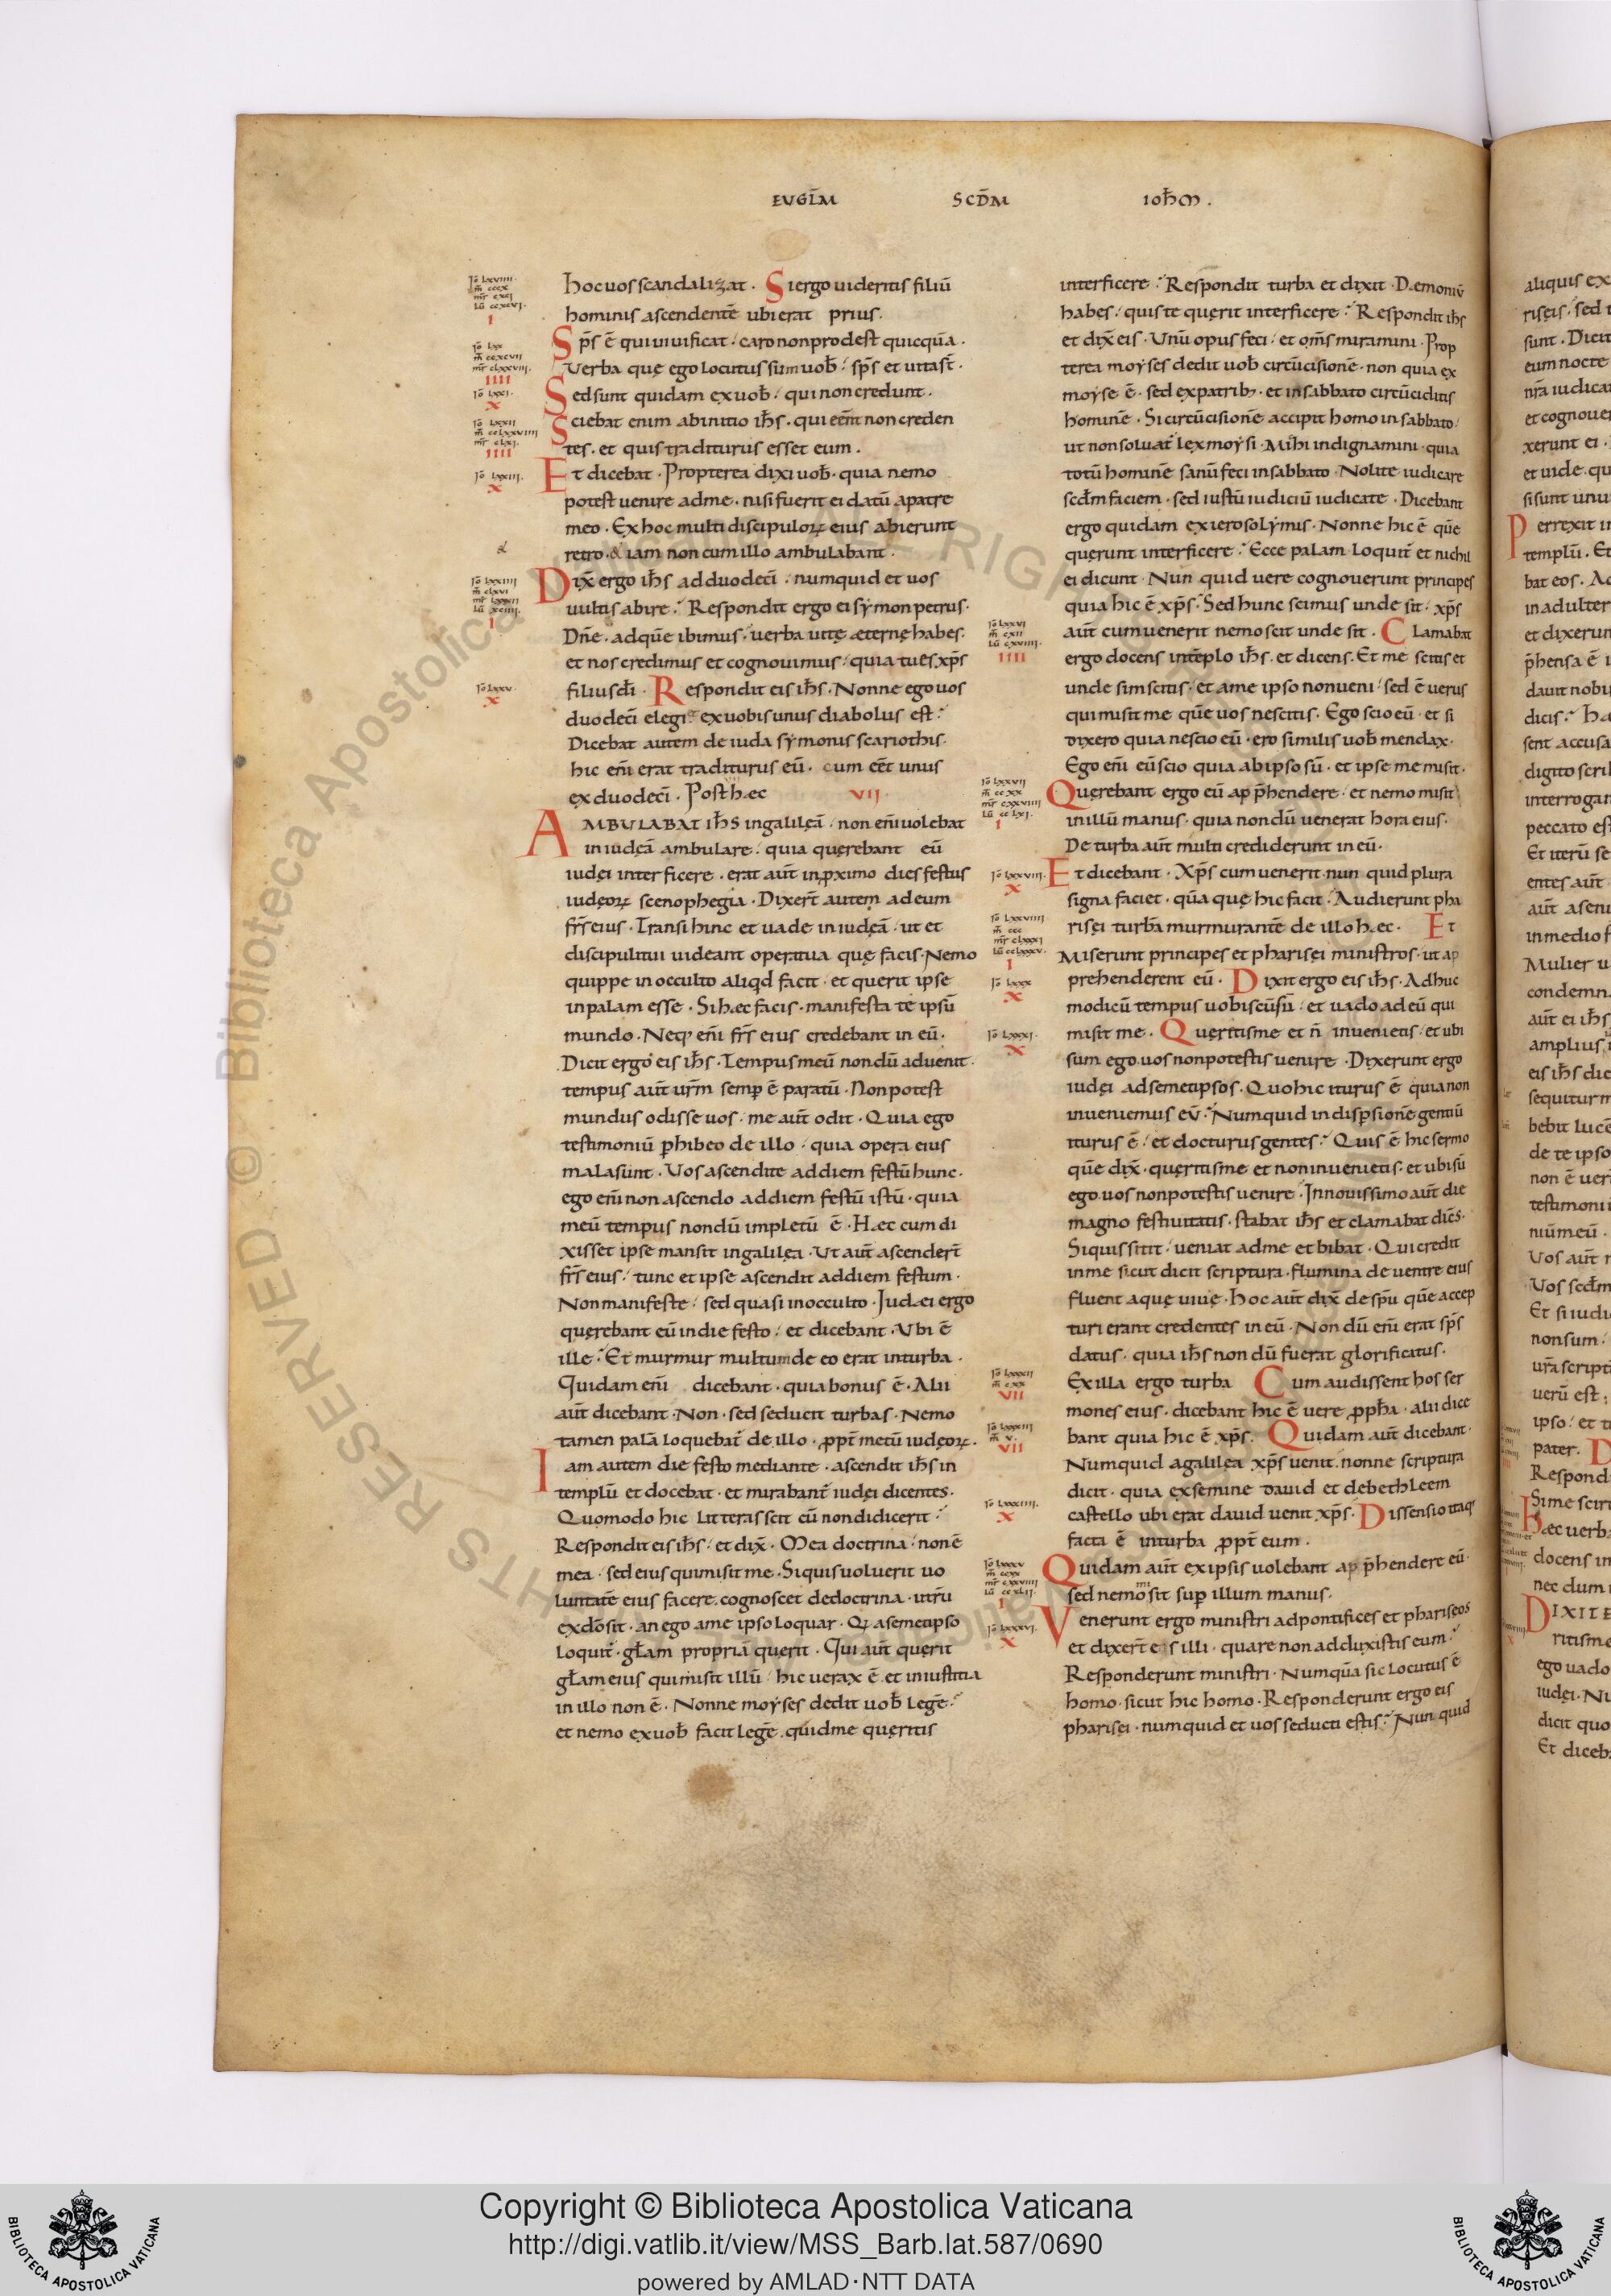 EVGL̄M SCD̄M IOH̄M.
hoc uos scandalizat. Si ergo uideritis filiū
hominis ascendentē ubi erat prius.
Sp̄s ē qui uiuificat. caro non prodest quicquā.
Verba quę ego locutus sum uob̄. sp̄s et uita st̄.
Sed sunt quidam ex uob̄. qui non credunt.
Sciebat enim ab initio ih̄s. qui eēnt non creden
tes. et quis traditurus esset eum.
Et dicebat. Propterea dixi uob̄. quia nemo
potest uenire ad me. nisi fuerit ei datū a patre
meo. Ex hoc multi discipuloꝝ eius abierunt
retro. & iam non cum illo ambulabant.
Dix̄ ergo ih̄s ad duodecī. numquid et uos
uultis abire? Respondit ergo ei symon petrus.
Dn̄e. ad quē ibimus. uerba uitę æternę habes.
et nos credimus et cognouimus. quia tu es xp̄s
filius dī. Respondit eis ih̄s. Nonne ego uos
duodecī elegi. ex uobis unus diabolus est?
Dicebat autem de iuda symonis scariothis.
hic enī erat traditurus eū. cum eēt unus
ex duodecī. Post hæc VII
AMBULABAT IH̄S in galileā. non enī uolebat
in iudeā ambulare. quia querebant eū
iudęi interficere. erat aūt in ꝓximo dies festus
iudęoꝝ scenophegia. Dixer̄t autem ad eum
fr̄s eius. Transi hinc et uade in iudęā. ut et
discipuli tui uideant opera tua quę facis. Nemo
quippe in occulto aliqd facit. et querit ipse
in palam esse. Si hæc facis. manifesta te ipsū
mundo. Neq; enī fr̄s eius credebant in eū.
Dicit ergo eis ih̄s. Tempus meū nondū aduenit.
tempus aūt ur̄m semꝑ ē paratū. Non potest
mundus odisse uos. me aūt odit. Quia ego
testimoniū ꝑhibeo de illo. quia opera eius
mala sunt. Vos ascendite ad diem festū hunc.
ego enī non ascendo ad diem festū istū. quia
meū tempus nondū impletū ē. Hæc cum di
xisset ipse mansit in galilęa. Ut aūt ascender̄t
fr̄s eius. tunc et ipse ascendit ad diem festum.
Non manifeste. sed quasi in occulto. Judæi ergo
querebant eū in die festo. et dicebant. Vbi ē
ille? Et murmur multum de eo erat in turba.
Quidam enī dicebant. quia bonus ē. Alii
aūt dicebant. Non. sed seducit turbas. Nemo
tamen palā loquebat̄ de illo. ꝓpt̄ metū iudęoꝝ.
Iam autem die festo mediante. ascendit ih̄s in
templū et docebat. et mirabant̄ iudęi dicentes.
Quomodo hic litteras scit cū non didicerit?
Respondit eis ih̄s. et dix̄. Mea doctrina. non ē
mea. sed eius qui misit me. Si quis uoluerit uo
luntatē eius facere. cognoscet de doctrina. utrū
ex dō sit. an ego a me ipso loquar. Qi a semetipso
loquit̄. gl̄am propriā querit. Qui aūt querit
gl̄am eius qui misit illū. hic uerax ē. et iniustitia
in illo non ē. Nonne moyses dedit uob̄ legē?
et nemo ex uob̄ facit legē. quid me queritis
interficere? Respondit turba et dixit. Dæmoniū
habes. quis te querit interficere? Respondit ih̄s
et dix̄ eis. Unū opus feci. et om̄s miramini. Prop
terea moyses dedit uob̄ circūcisionē. non quia ex
moyse ē. sed ex patrib;. et in sabbato circūciditis
hominē. Si circūcisionē accipit homo in sabbato.
ut non soluat̄ lex moysi. Mihi indignamini. quia
totū hominē sanū feci in sabbato. Nolite iudicare
scd̄m faciem. sed iustū iudiciū iudicate. Dicebant
ergo quidam ex ierosolymis. Nonne hic ē quē
querunt interficere? Ecce palam loquit̄ et nichil
ei dicunt. Nun quid uere cognouerunt principes
quia hic ē xp̄s. Sed hunc scimus unde sit. xp̄s
aūt cum uenerit nemo scit unde sit. Clamabat
ergo docens in tēplo ih̄s. et dicens. Et me scitis et
unde sim scitis. et a me ipso non ueni. sed ē uerus
qui misit me quē uos nescitis. Ego scio eū. et si
dixero quia nescio eū. ero similis uob̄ mendax.
Ego enī eū scio quia ab ipso sū. et ipse me misit.
Querebant ergo eū app̄hendere. et nemo misit
in illū manus. quia nondū uenerat hora eius.
De turba aūt multi crediderunt in eū.
Et dicebant. Xp̄s cum uenerit. nun quid plura
signa faciet. quā quę hic facit. Audierunt pha
risęi turbā murmurantē de illo hæc. Et
Miserunt principes et pharisęi ministros. ut ap
prehenderent eū. Dixit ergo eis ih̄s. Adhuc
modicū tempus uobiscū sū. et uado ad eū qui
misit me. Queritis me et n̄ inuenietis. et ubi
sum ego. uos non potestis uenire. Dixerunt ergo
iudęi ad semetipsos. Quo hic iturus ē quia non
inueniemus eū? Numquid in disꝑsionē gentiū
iturus ē. et docturus gentes? Quis ē hic sermo
quē dix̄. queritis me et non inuenietis. et ubi sū
ego. uos non potestis uenire. In nouissimo aūt die
magno festiuitatis. stabat ih̄s et clamabat dicēs.
Si quis sitit. ueniat ad me et bibat. Qui credit
in me sicut dicit scriptura. flumina de uentre eius
fluent aquę uiuę. Hoc aūt dix̄ de sp̄u quē accep
turi erant credentes in eū. Non dū enī erat sp̄s
datus. quia ih̄s non dū fuerat glorificatus.
Ex illa ergo turba Cum audissent hos ser
mones eius. dicebant hic ē uere ꝓph̄a. alii dice
bant quia hic ē xp̄s. Quidam aūt dicebant.
Numquid a galilęa xp̄s uenit. nonne scriptura
dicit. quia ex semine dauid et de bethleem
castello ubi erat dauid uenit xp̄s. Dissensio itaq;
facta ē in turba ꝓpt̄ eum.
Quidam aūt ex ipsis uolebant app̄hendere eū.
sed nemo misit suꝑ illum manus.
Venerunt ergo ministri ad pontifices et phariseos
et dixer̄t eis illi. quare non adduxistis eum?
Responderunt ministri. Numquā sic locutus ē
homo. sicut hic homo. Responderunt ergo eis
pharisęi. numquid et uos seducti estis? Nun quid
Copyright © Biblioteca Apostolica Vaticana
http://digi.vatlib.it/view/MSS_Barb.lat.587/0690
powered by AMLAD·NTT DATA
BIBLIOTECA APOSTOLICA VATICANA
BIBLIOTECA APOSTOLICA VATICANA